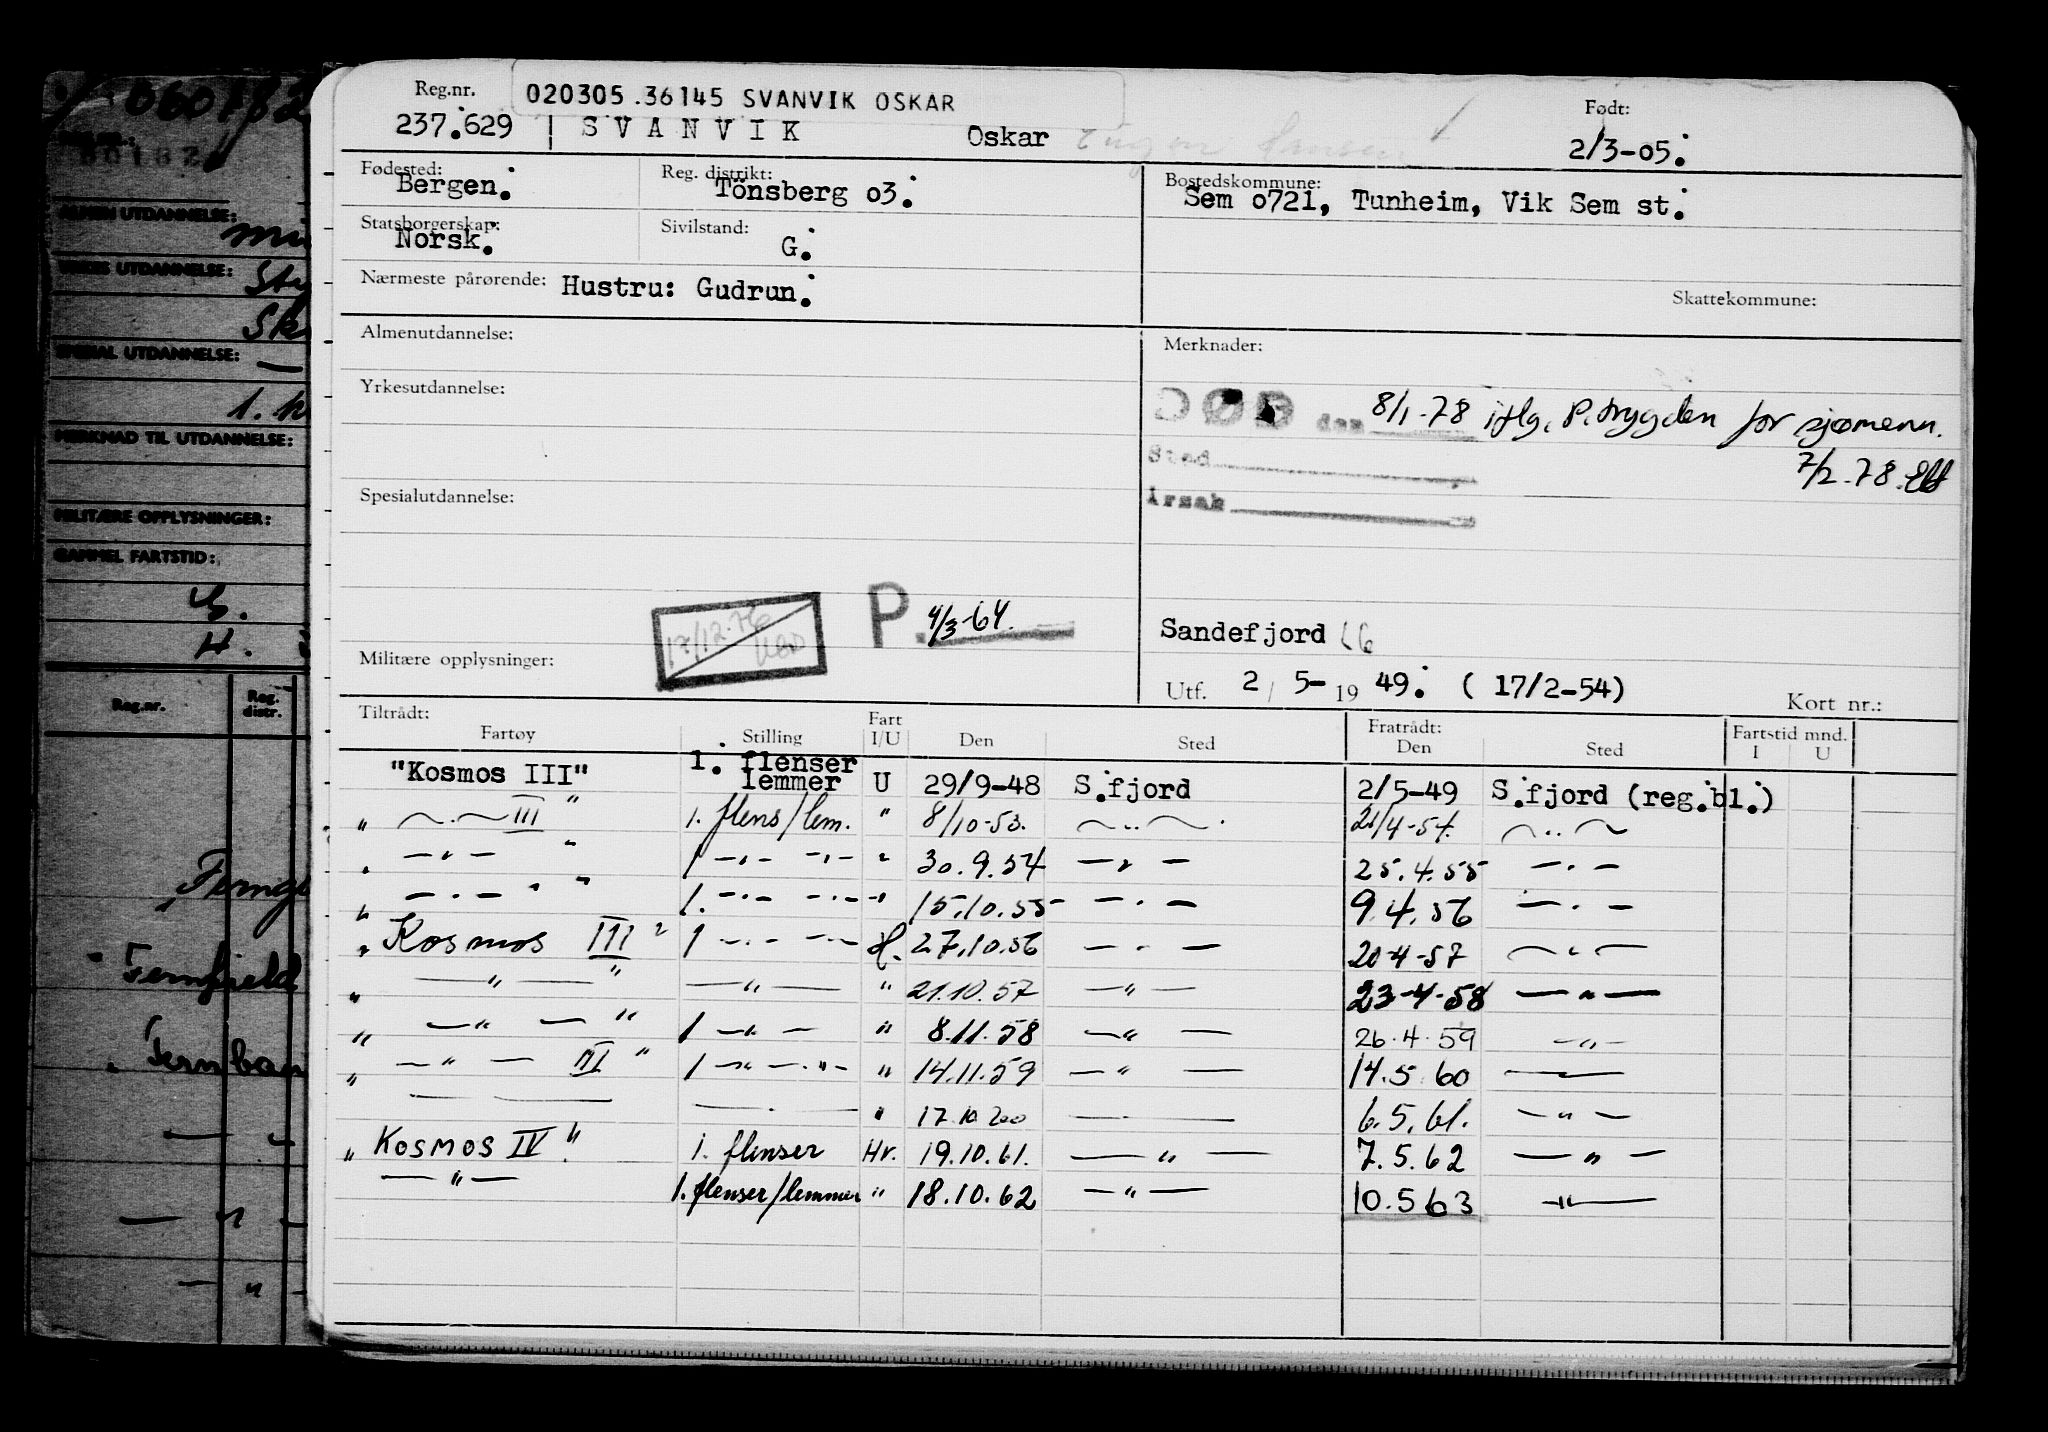 020305.36145 SVANVIK OSKAR
Reg.nr. Født:
237.629 SVANVIK Oskar 2/3-05.
Fødested: Reg. distrikt: Bostedskommune:
Bergen. Tönsberg o3. Sem o721, Tunheim, Vik Sem st.
Statsborgerskap: Sivilstand:
Norsk. G.
Nærmeste pårørende: Hustru: Gudrun. Skattekommune:
Almenutdannelse: Merknader:
Yrkesutdannelse:
DØD den 8/1-78 iflg. P.trygden for sjømenn.
Sted 7/2-78.
Årsak
Spesialutdannelse:
17/12-76
P. 4/3-64.
Sandefjord
Militære opplysninger:
Utf. 2/5-1949. (17/2-54) Kort nr.:
Tiltrådt: Fart Fratrådt: Fartstid mnd.
Fartøy Stilling I/U Den Sted Den Sted I U
"Kosmos III" 1. flenser lemmer U 29/9-48 S.fjord 2/5-49 S.fjord (reg.bl.)
" —.— III" 1. flens/lem. " 8/10-53. —..— 21/4-54. —..—
" —"— " 1 —"— —"— " 30.9.54 —"— 25.4.55 —"—
" —"— " 1. —"— —"— " 15.10.55 —"— 9.4.56 —"—
"Kosmos III" 1 —"— —"— H. 27.10.56 —"— 20-4-57 —"—
" —"— " —"— " 21.10.57 —"— 23-4-58 —"—
" —"— " 1 —"— " 8.11.58 —"— 26.4.59 —"—
" —"— III" 1 —"— —"— " 14.11.59 —"— 14.5.60 —
— — " 17.10. — 6.5.61. —"—
"Kosmos IV" 1. flenser Hv. 19.10.61. —"— 7.5.62 —"—
—"— 1. flenser/lemmer " 18.10.62 —"— 10.5 63 —"—
060182
ALMEN UTDANNELSE:
YRKES UTDANNELSE:
SPESIAL UTDANNELSE:
MERKNAD TIL UTDANNELSE:
MILITÆRE OPPLYSNINGER:
GAMMEL FARTSTID:
H.
Reg.nr. Reg. distr.